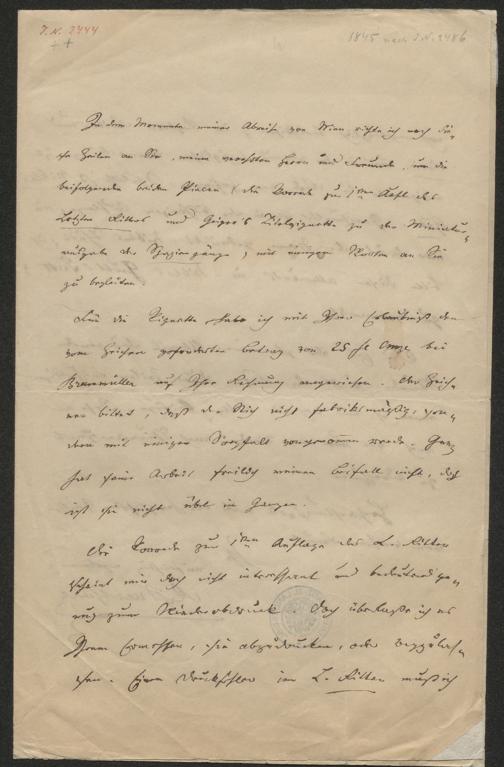 J. N. 2444
1845 nach J. N. 2486
In dem Momente meiner Abreise von Wien richte ich noch die-
se Zeilen an Sie, meine verehrten Herrn und Freunde, um die
beifolgenden beiden Piecen (die Vorrede zur 1ten Aufl. des
Letzten Ritters und Geiger's Titelvignette zu der Miniatur-
ausgabe der Spaziergänge) mit einigen Worten an Sie
zu begleiten.
Für die Vignette habe ich mit Ihrer Erlaubniß den
vom Zeichner geforderten Betrag von 25 fl Conv. bei
Braumüller auf Ihre Rechnung angewiesen. Der Zeich-
ner bittet, daß der Stich nicht fabriksmäßig, son-
dern mit einiger Sorgfalt vorgenommen werde. Ganz
hat seine Arbeit freilich meinen Beifall nicht, doch
ist sie nicht übel im Ganzen.
Die Vorrede zur 1ten Auflage des L. Ritters
scheint mir doch nicht interessant und bedeutend ge-
nug zum Wiederabdruck. Doch überlasse ich es
Ihrem Ermessen, sie abzudrucken, oder wegzulas-
sen. Einen Druckfehler im L. Ritter muß ich